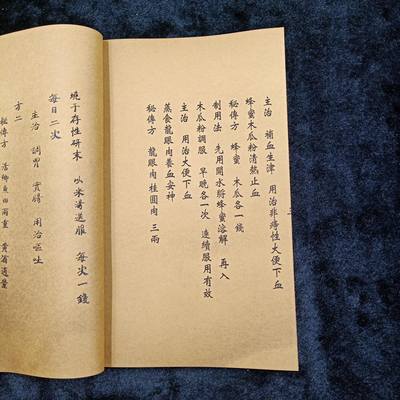 主治 補血生津 用治非痔性大便下血
蜂蜜木瓜粉清熱止血
秘傳方 蜂蜜 木瓜各一錢
制用法 先用開水將蜂蜜溶解 再入
木瓜粉調服 早晚各一次 連續服用有效
主治 用治大便下血
蒸食龍眼肉養血安神
秘傳方 龍眼肉桂圓肉 三兩
燒于存性研末 以米湯送服 每次一錢
每日二次
主治 調胃 實腸 用治嘔吐
方二
秘傳方 活鯽魚田兩重 黃翁適量